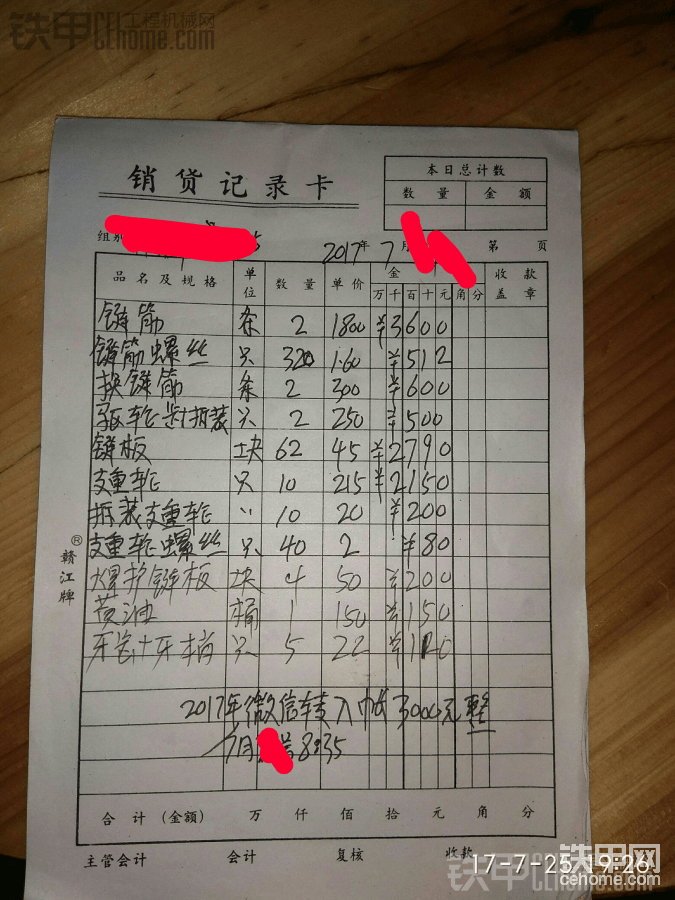 铁甲 CE工程机械网
CEhome.com
销货记录卡
本日总计数
数量 金额
组别 2017年7月 第 页
品名及规格 单位 数量 单价 金 收款盖章
万 千 百 十 元 角 分
链筋 条 2 1800 ¥3600
链筋螺丝 只 320 1.60 ¥512
换链筋 条 2 300 ¥600
驱轮 拆装 只 2 250 ¥500
链板 块 62 45 ¥2790
支重轮 只 10 215 ¥2150
拆装支重轮 〃 10 20 ¥200
支重轮螺丝 只 40 2 ¥80
焊护链板 块 4 50 ¥200
黄油 桶 1 150 ¥150
牙 +牙 只 5 22 ¥110
®
赣江牌
2017年微信转入帐3000元整
7月 8:35
合计(金额) 万 仟 佰 拾 元 角 分
主管会计 会计 复核 收款
17-7-25 19:26
铁甲网
cehome.com